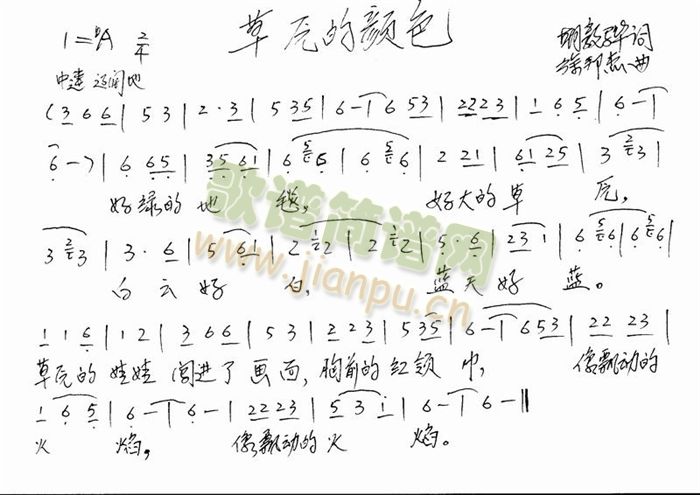 草原的颜色
1=♭A 2/4
词
曲
中速 辽阔地
(3 6 6 | 5 3 | 2·3 | 5 3 5 | 6 - | 6 5 3 | 2 2 2 3 | 1 6 5 | 6 - |
6 -) | 6 6 5 | 3 5 6 1 | 6 6 | 6 6 | 2 2 1 | 6 1 2 5 | 3 3 |
好绿的地毯, 好大的草原,
3 3 | 3· 6 | 5 6 1 | 2 2 | 2 2 | 5·6 | 2 3 1 | 6 6 | 6 6 |
白云好白, 蓝天好蓝。
歌谱简谱网
www.jianpu.cn
1 1 6 | 1 2 | 3 6 6 | 5 3 | 2 2 3 | 5 3 5 | 6 - | 6 5 3 | 2 2 2 3 |
草原的娃娃闯进了画面, 胸前的红领巾, 像飘动的
1 6 5 | 6 - | 6 - | 2 2 2 3 | 5 3 1 | 6 - | 6 - ‖
火焰, 像飘动的火焰。